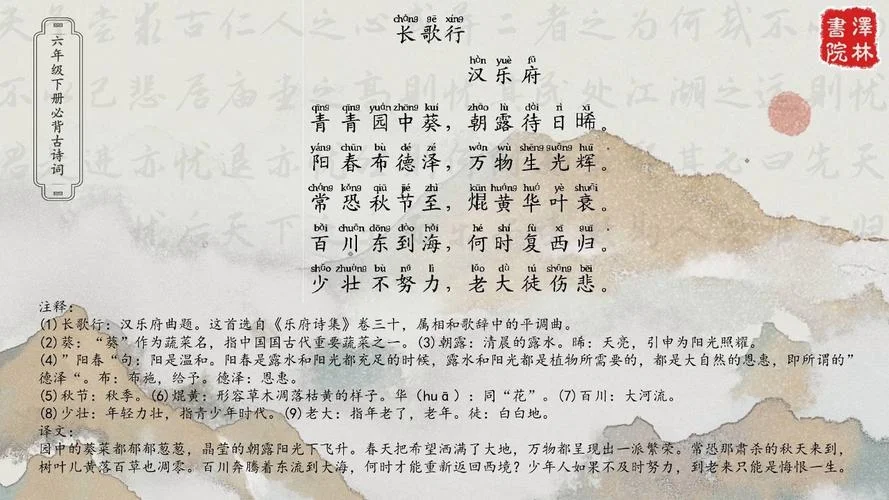 六年级下册必背古诗词
澤林
書院
cháng gē xíng
长歌行
hàn yuè fǔ
汉乐府
qīng qīng yuán zhōng kuí zhāo lù dài rì xī
青青园中葵，朝露待日晞。
yáng chūn bù dé zé wàn wù shēng guāng huī
阳春布德泽，万物生光辉。
cháng kǒng qiū jié zhì kūn huáng huá yè shuāi
常恐秋节至，焜黄华叶衰。
bǎi chuān dōng dào hǎi hé shí fù xī guī
百川东到海，何时复西归。
shào zhuàng bù nǔ lì lǎo dà tú shāng bēi
少壮不努力，老大徒伤悲。
注释：
(1)长歌行：汉乐府曲题。这首选自《乐府诗集》卷三十，属相和歌辞中的平调曲。
(2)葵：“葵”作为蔬菜名，指中国国古代重要蔬菜之一。(3)朝露：清晨的露水。晞：天亮，引申为阳光照耀。
(4)”阳春“句：阳是温和。阳春是露水和阳光都充足的时候，露水和阳光都是植物所需要的，都是大自然的恩惠，即所谓的”
德泽“。布：布施，给予。德泽：恩惠。
(5)秋节：秋季。(6)焜黄：形容草木凋落枯黄的样子。华（huā）：同“花”。(7)百川：大河流。
(8)少壮：年轻力壮，指青少年时代。(9)老大：指年老了，老年。徒：白白地。
译文：
园中的葵菜都郁郁葱葱，晶莹的朝露阳光下飞升。春天把希望洒满了大地，万物都呈现出一派繁荣。常恐那肃杀的秋天来到，
树叶儿黄落百草也凋零。百川奔腾着东流到大海，何时才能重新返回西境？少年人如果不及时努力，到老来只能是悔恨一生。